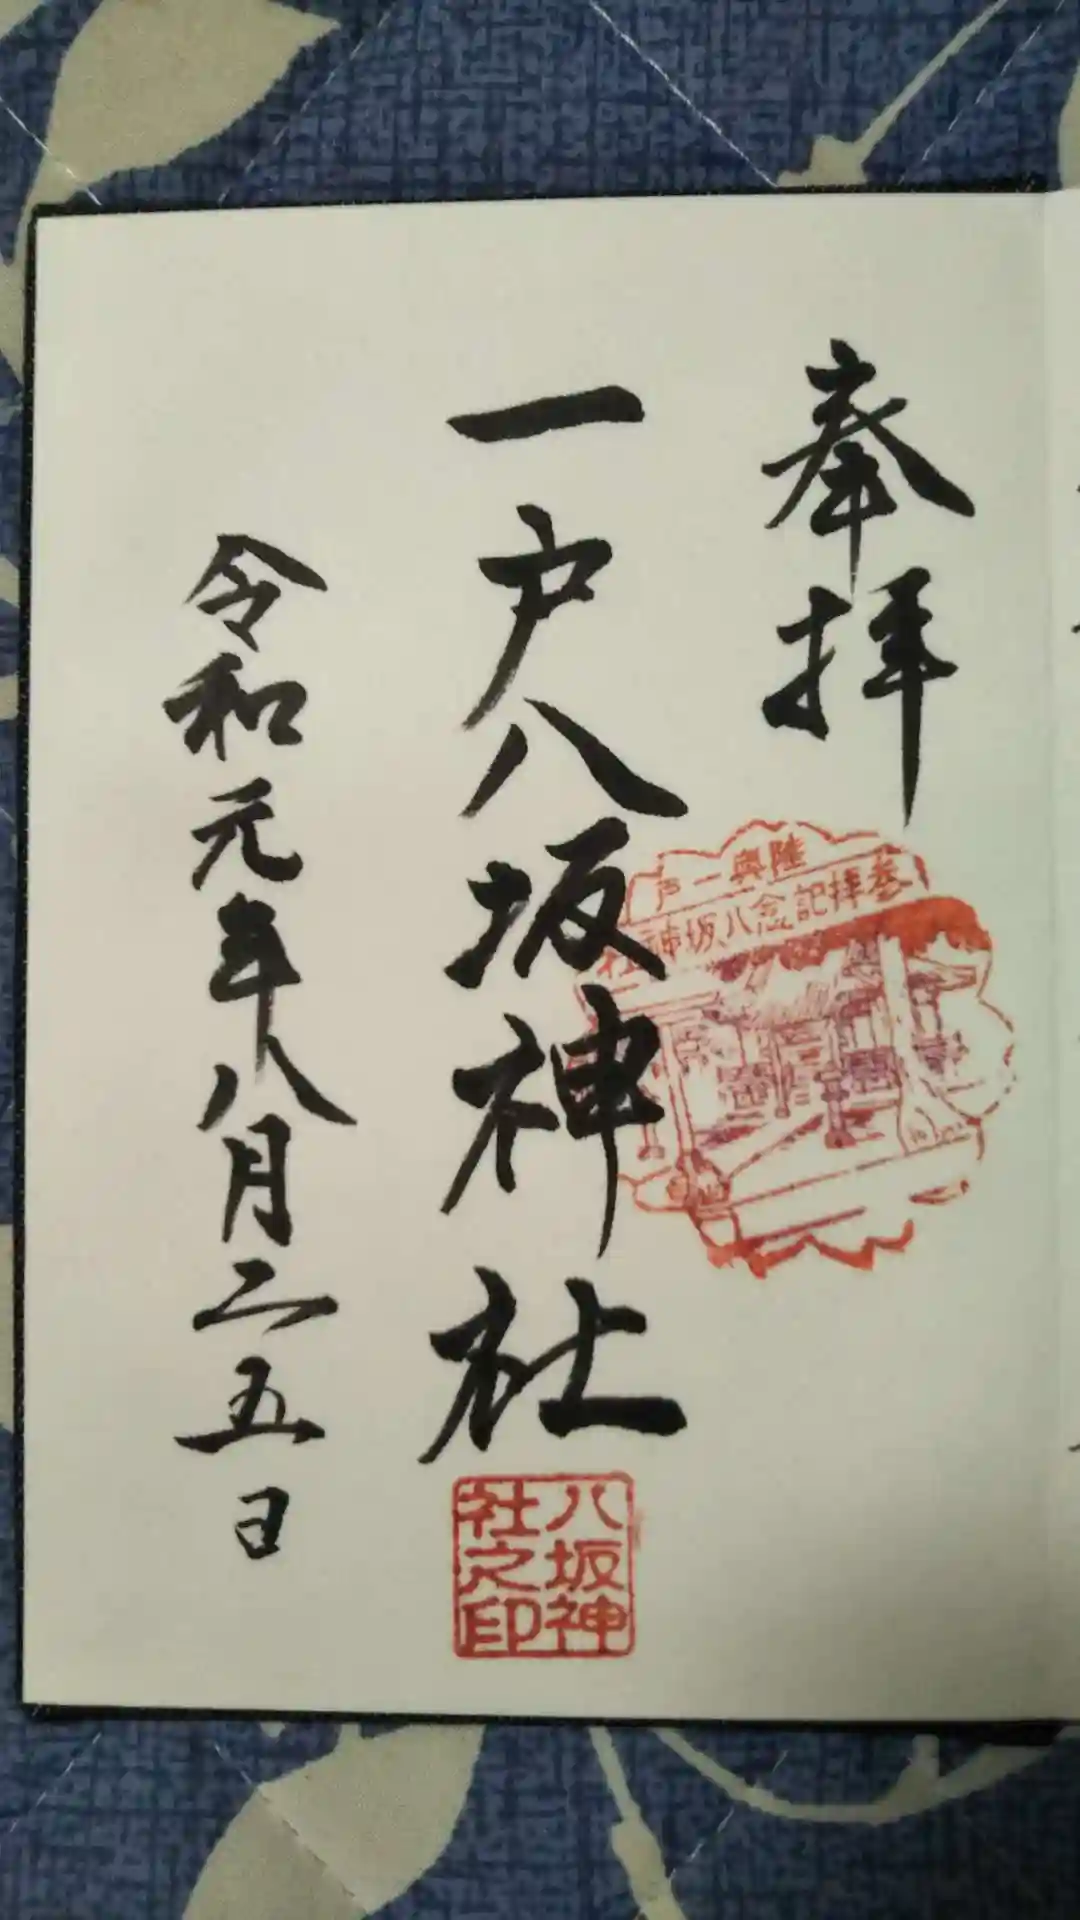 奉拝
陸奥一戸
参拝記念八坂神社
一戸八坂神社
八坂神
社之印
令和元年八月二五日